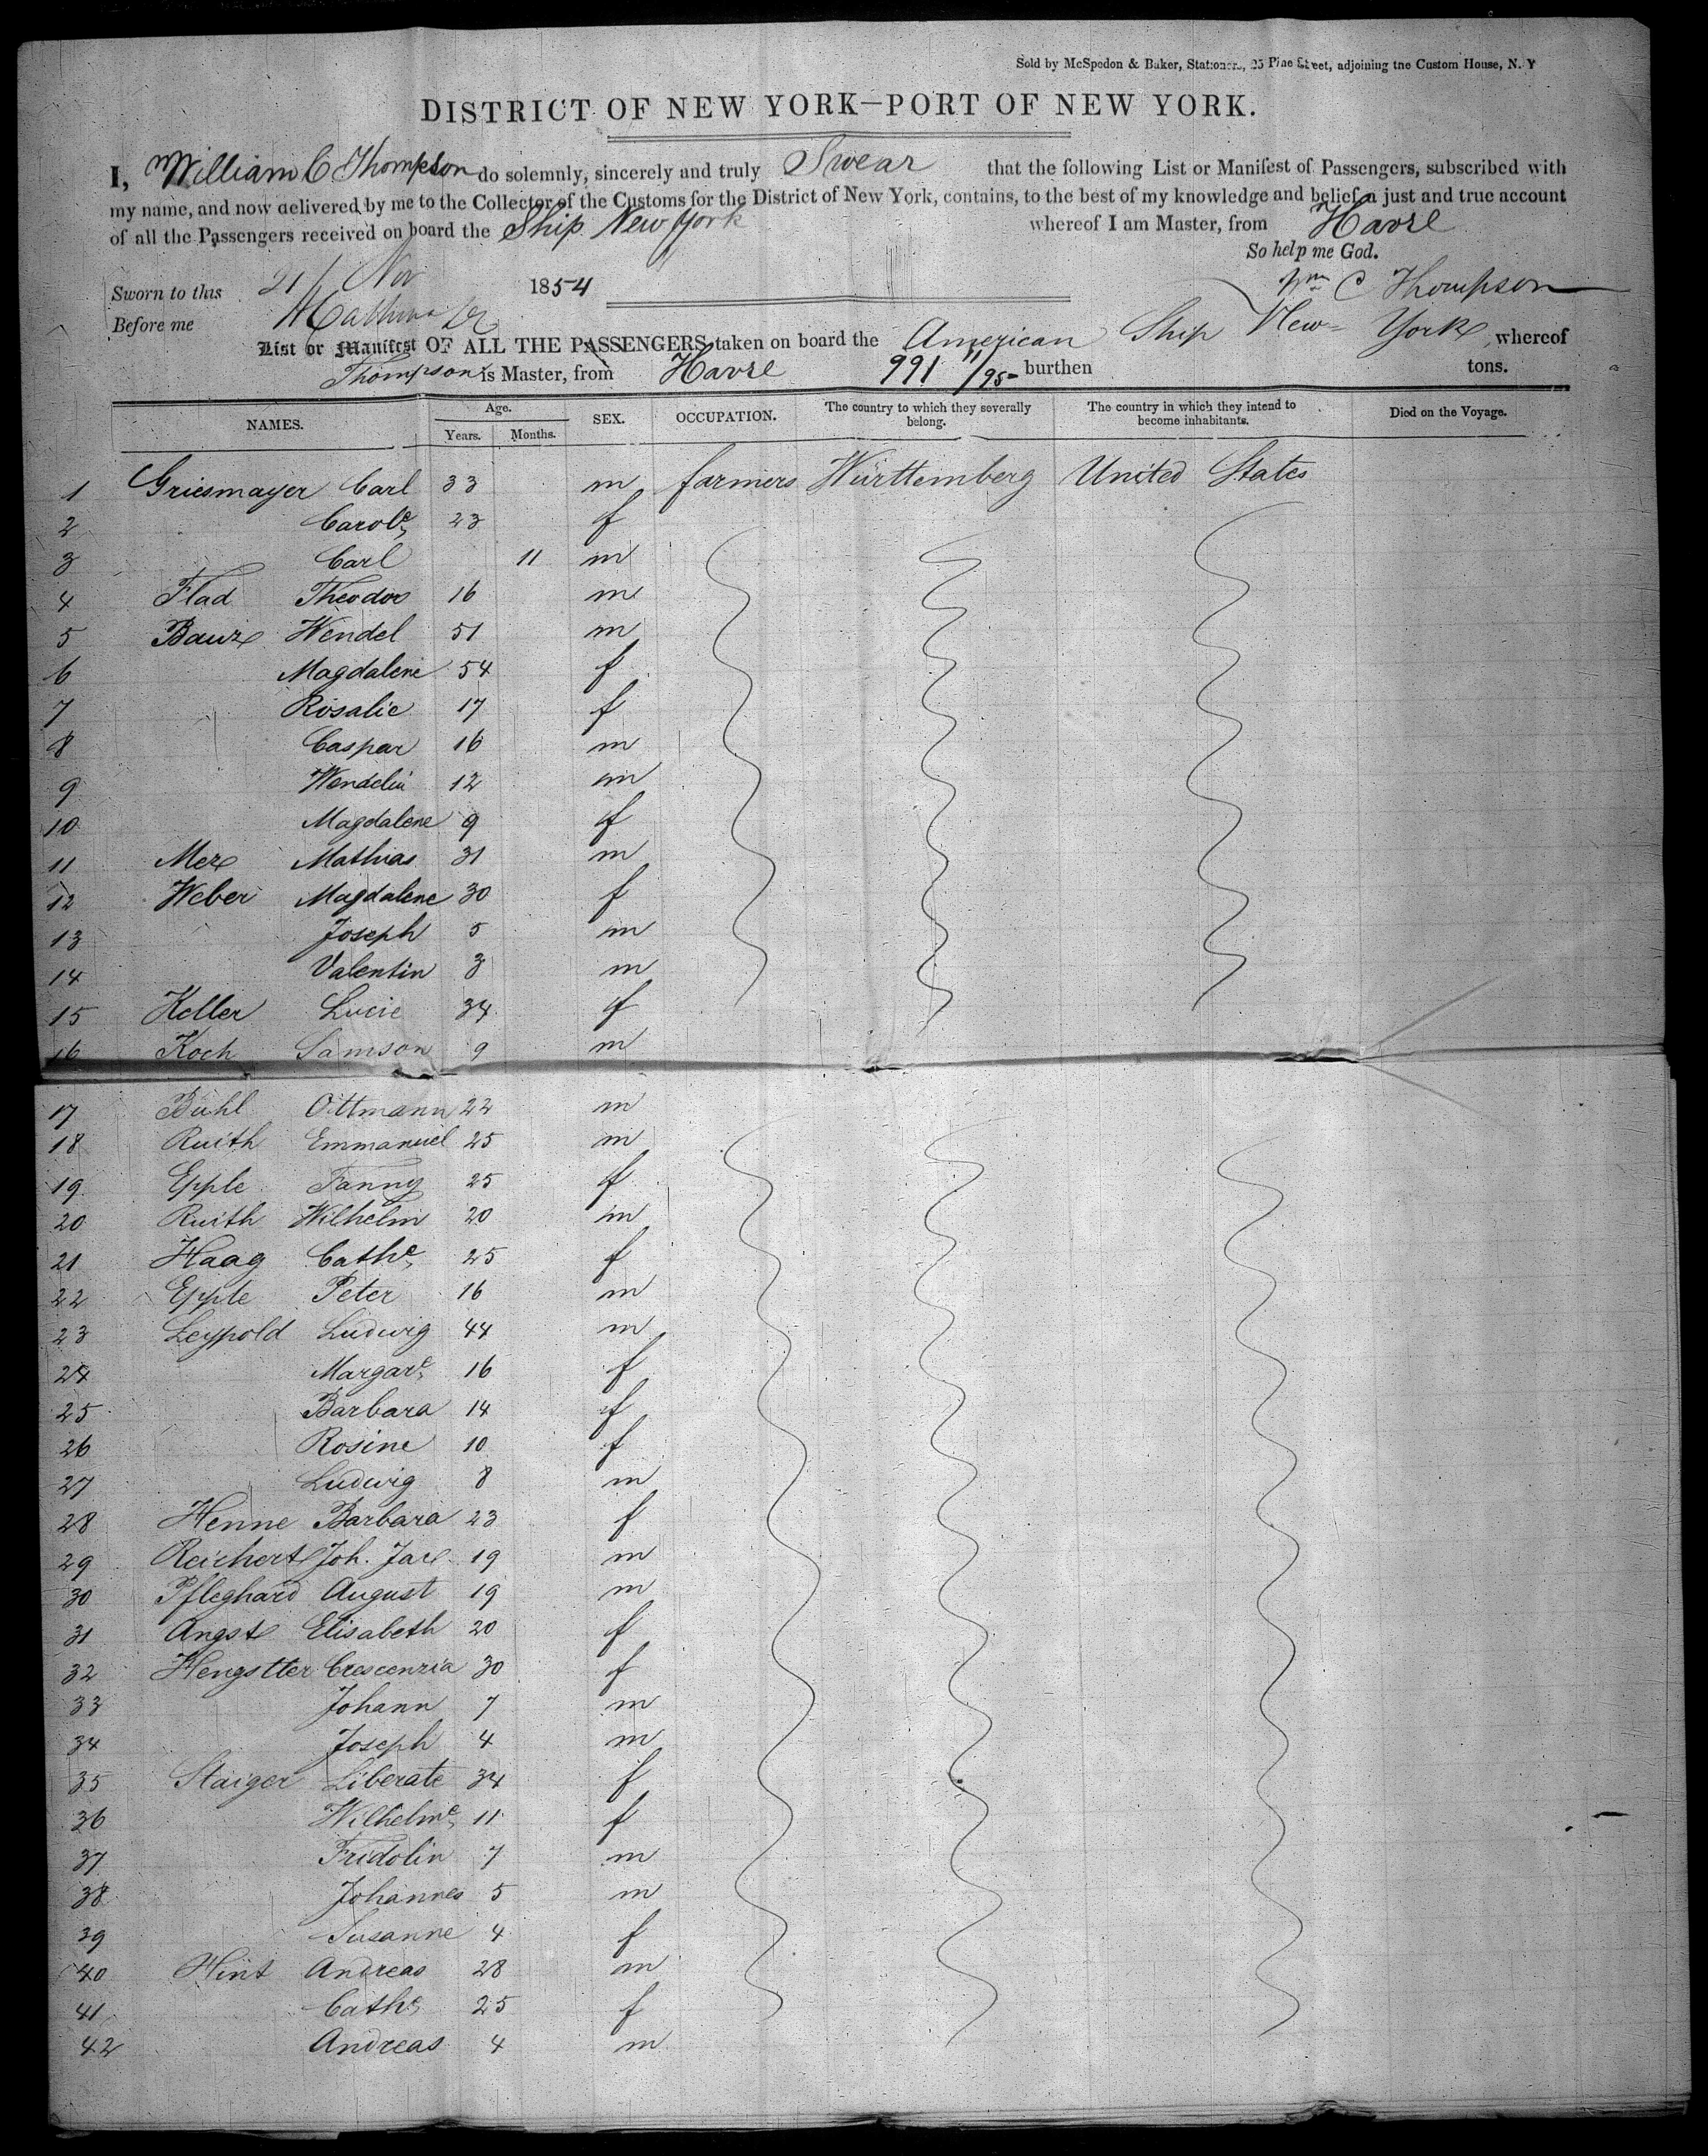 Sold by McSpedon & Baker, Stationers, 25 Pine Street, adjoining the Custom House, N. Y
DISTRICT OF NEW YORK—PORT OF NEW YORK.
I, William C Thompson do solemnly, sincerely and truly Swear that the following List or Manifest of Passengers, subscribed with
my name, and now delivered by me to the Collector of the Customs for the District of New York, contains, to the best of my knowledge and belief, a just and true account
of all the Passengers received on board the Ship New York whereof I am Master, from Havre
So help me God.
Sworn to this 21 Nov 1854 Wm C Thompson
Before me
List or Manifest OF ALL THE PASSENGERS taken on board the American Ship New York, whereof
Thompson is Master, from Havre 991 11/95 burthen tons.
NAMES. Age. Years. Months. SEX. OCCUPATION. The country to which they severally belong. The country in which they intend to become inhabitants. Died on the Voyage.
1 Griesmayer Carl 33 m farmers Württemberg United States
2 Carole 23 f
3 Carl 11 m
4 Flad Theodor 16 m
5 Baur Wendel 51 m
6 Magdalene 54 f
7 Rosalie 17 f
8 Caspar 16 m
9 Wendelin 12 m
10 Magdalene 9 f
11 Merz Mathias 31 m
12 Weber Magdalene 30 f
13 Joseph 5 m
14 Valentin 3 m
15 Keller Lucie 34 f
16 Koch Samson 9 m
17 Buhl Ottmann 22 m
18 Ruith Emmanuel 25 m
19 Epple Fanny 25 f
20 Ruith Wilhelm 20 m
21 Haag Cathe 25 f
22 Epple Peter 16 m
23 Leypold Ludwig 44 m
24 Margare 16 f
25 Barbara 14 f
26 Rosine 10 f
27 Ludwig 8 m
28 Henne Barbara 23 f
29 Reichert Joh. Jac 19 m
30 Pfleghard August 19 m
31 Angst Elisabeth 20 f
32 Hengstter Crescenzia 30 f
33 Johann 7 m
34 Joseph 4 m
35 Staiger Liberate 34 f
36 Wilhelme 11 f
37 Fridolin 7 m
38 Johannes 5 m
39 Susanne 4 f
40 Hint Andreas 28 m
41 Cathe 25 f
42 Andreas 4 m